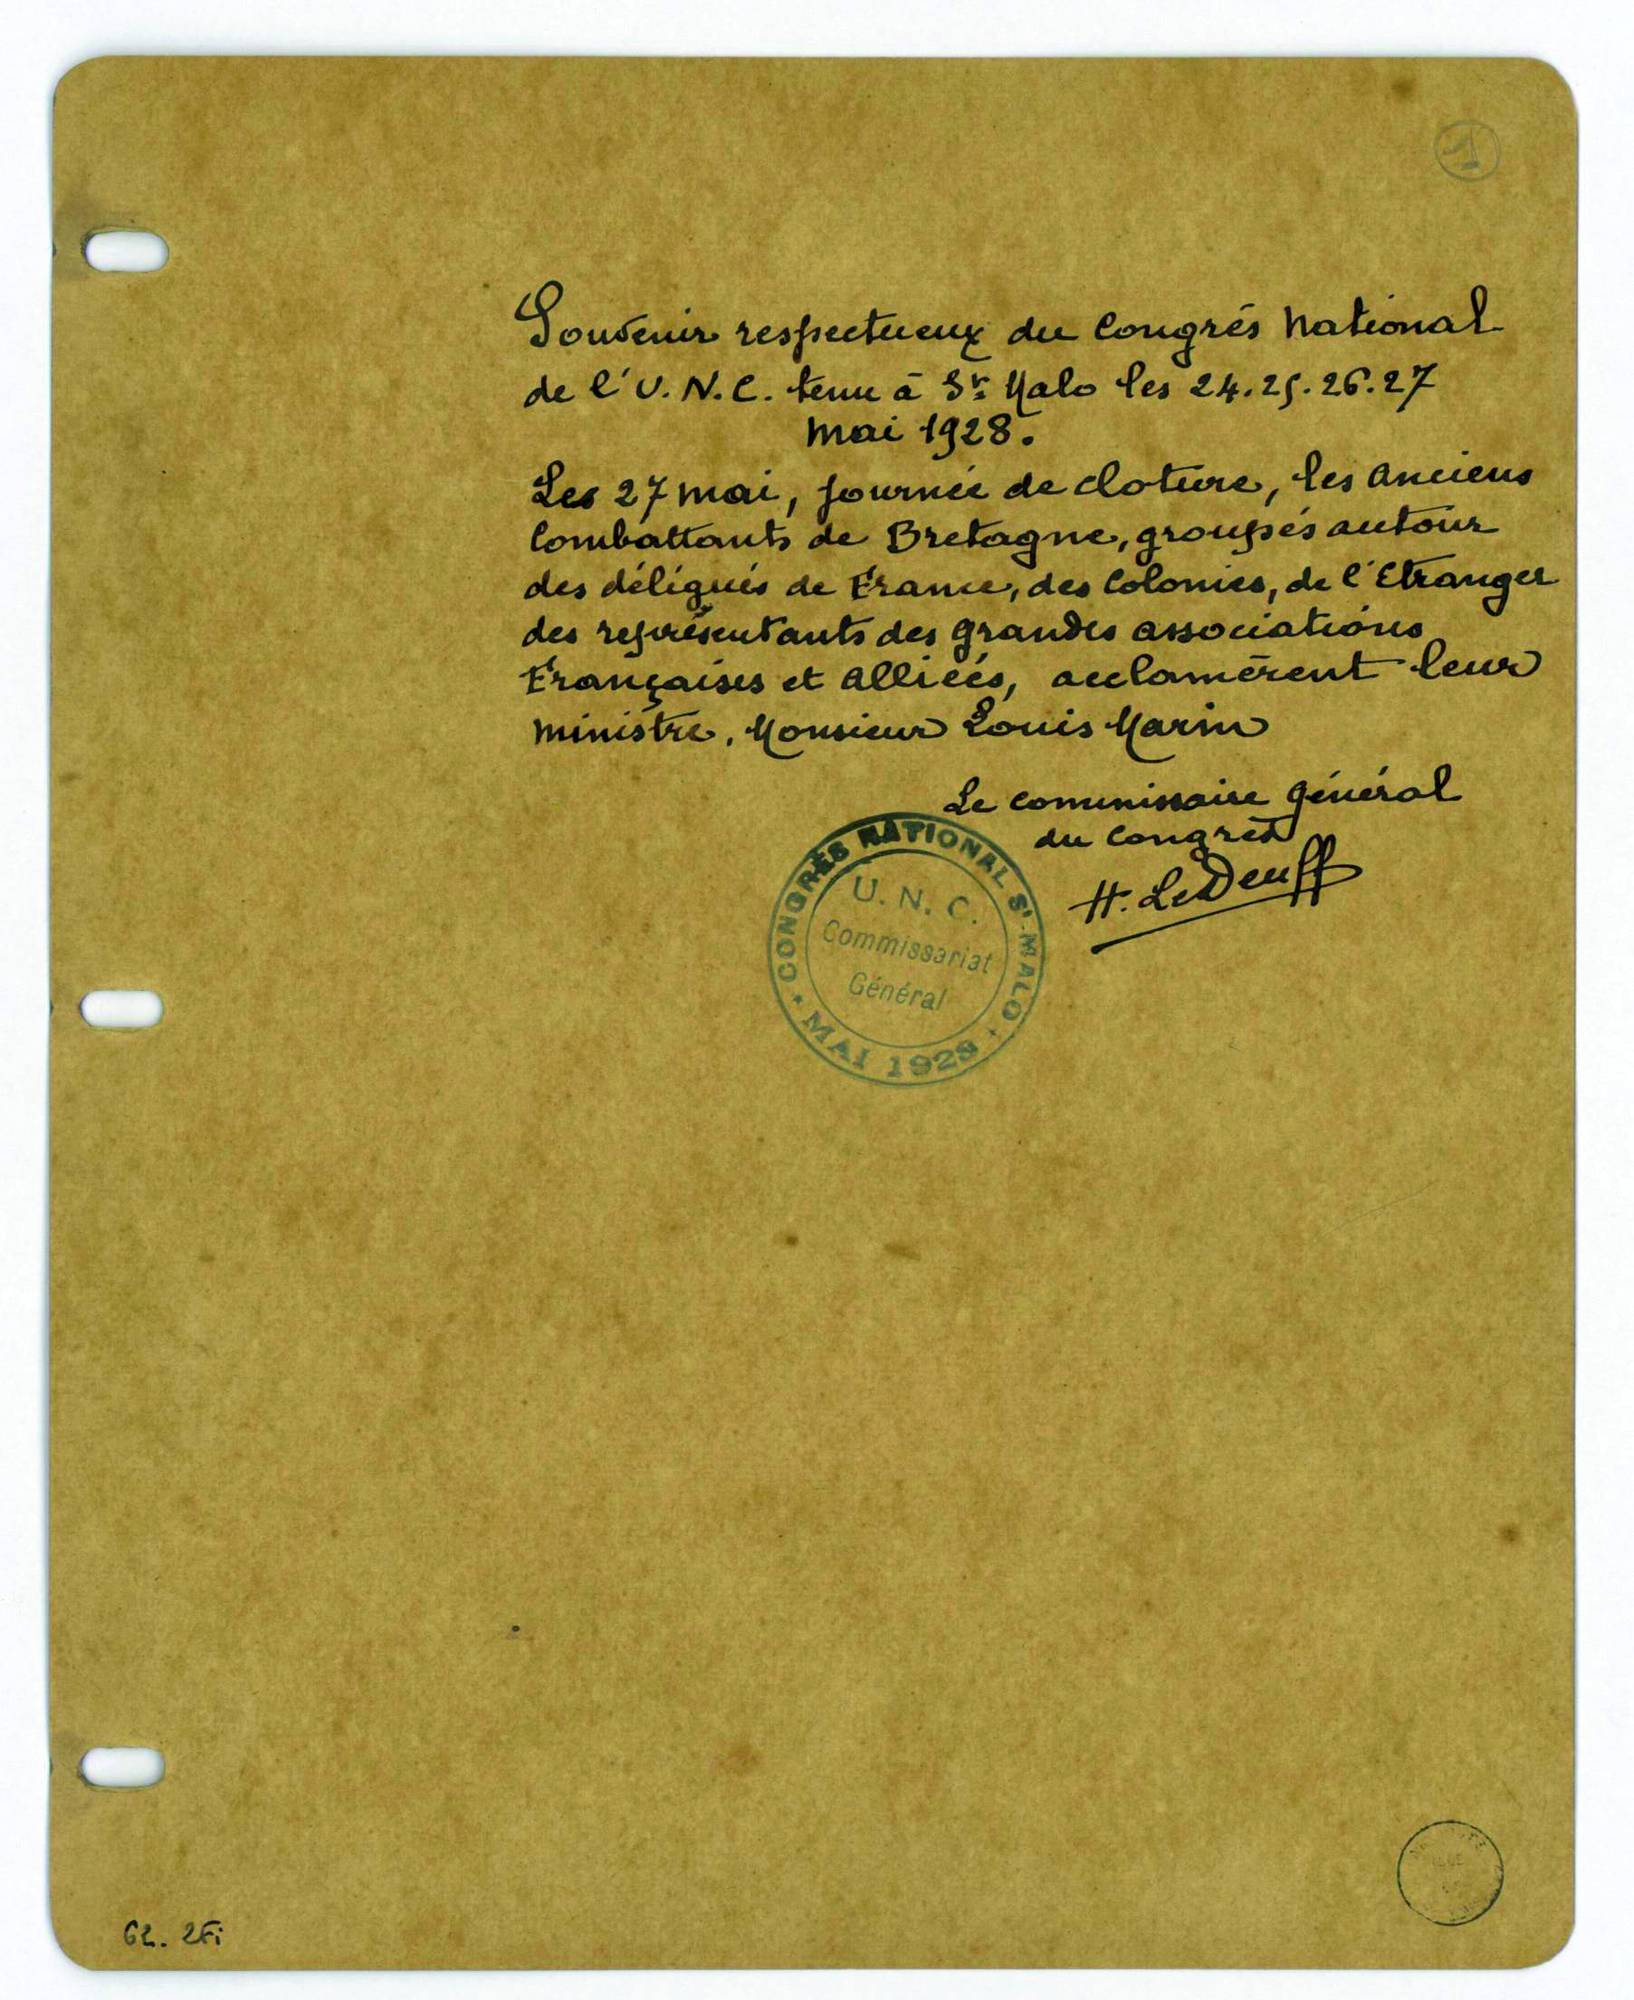 1
Souvenir respectueux du Congrès National
de l'U.N.C. tenu à St Malo les 24.25.26.27
mai 1928.
Les 27 mai, journée de cloture, les Anciens
Combattants de Bretagne, groupés autour
des délégués de France, des Colonies, de l'Etranger
des représentants des grandes associations
Françaises et Alliées, acclamèrent leur
ministre, Monsieur Louis Marin
Le commissaire général
du congrès
H. LeDeuff
CONGRÈS NATIONAL St MALO
U. N. C.
Commissariat
Général
MAI 1928
62. 2Fi